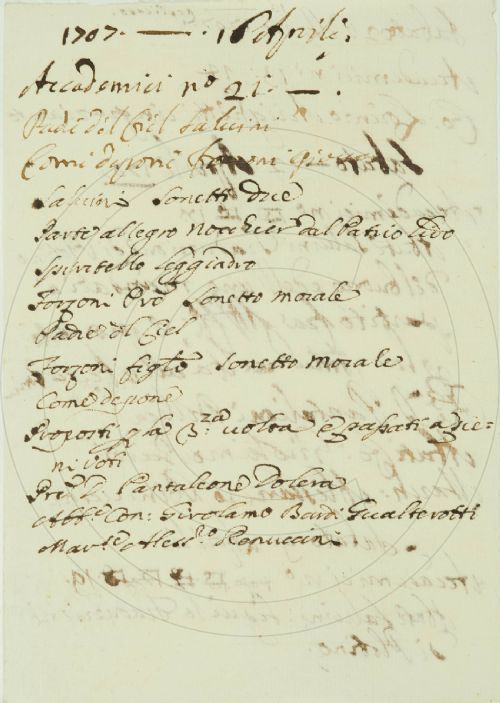 1707. — . 16 Aprili.
Accademici nº 21. — .
Padre del Ciel Salvini
Come depone Forzoni
Salvini Sonetti due
Parte allegro Nocchier dal Patrio Lido
Spiritello leggiadro
Forzoni Pre Sonetto morale
Padre del Ciel
Forzoni figlo Sonetto morale
Come depone
Proposti p la 3.za volta e passati a pie=
ni voti
Pre D. Pantaleone Dolera
Abte Con: Girolamo Bardi Gualterotti
Marse Aless.o Renuccini